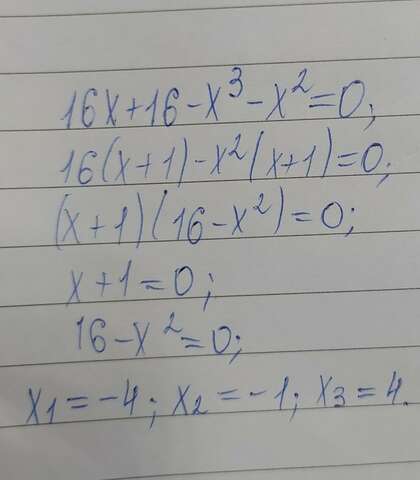 16x+16-x³-x²=0;
16(x+1)-x²(x+1)=0;
(x+1)(16-x²)=0;
x+1=0;
16-x²=0;
x₁=-4; x₂=-1; x₃=4.